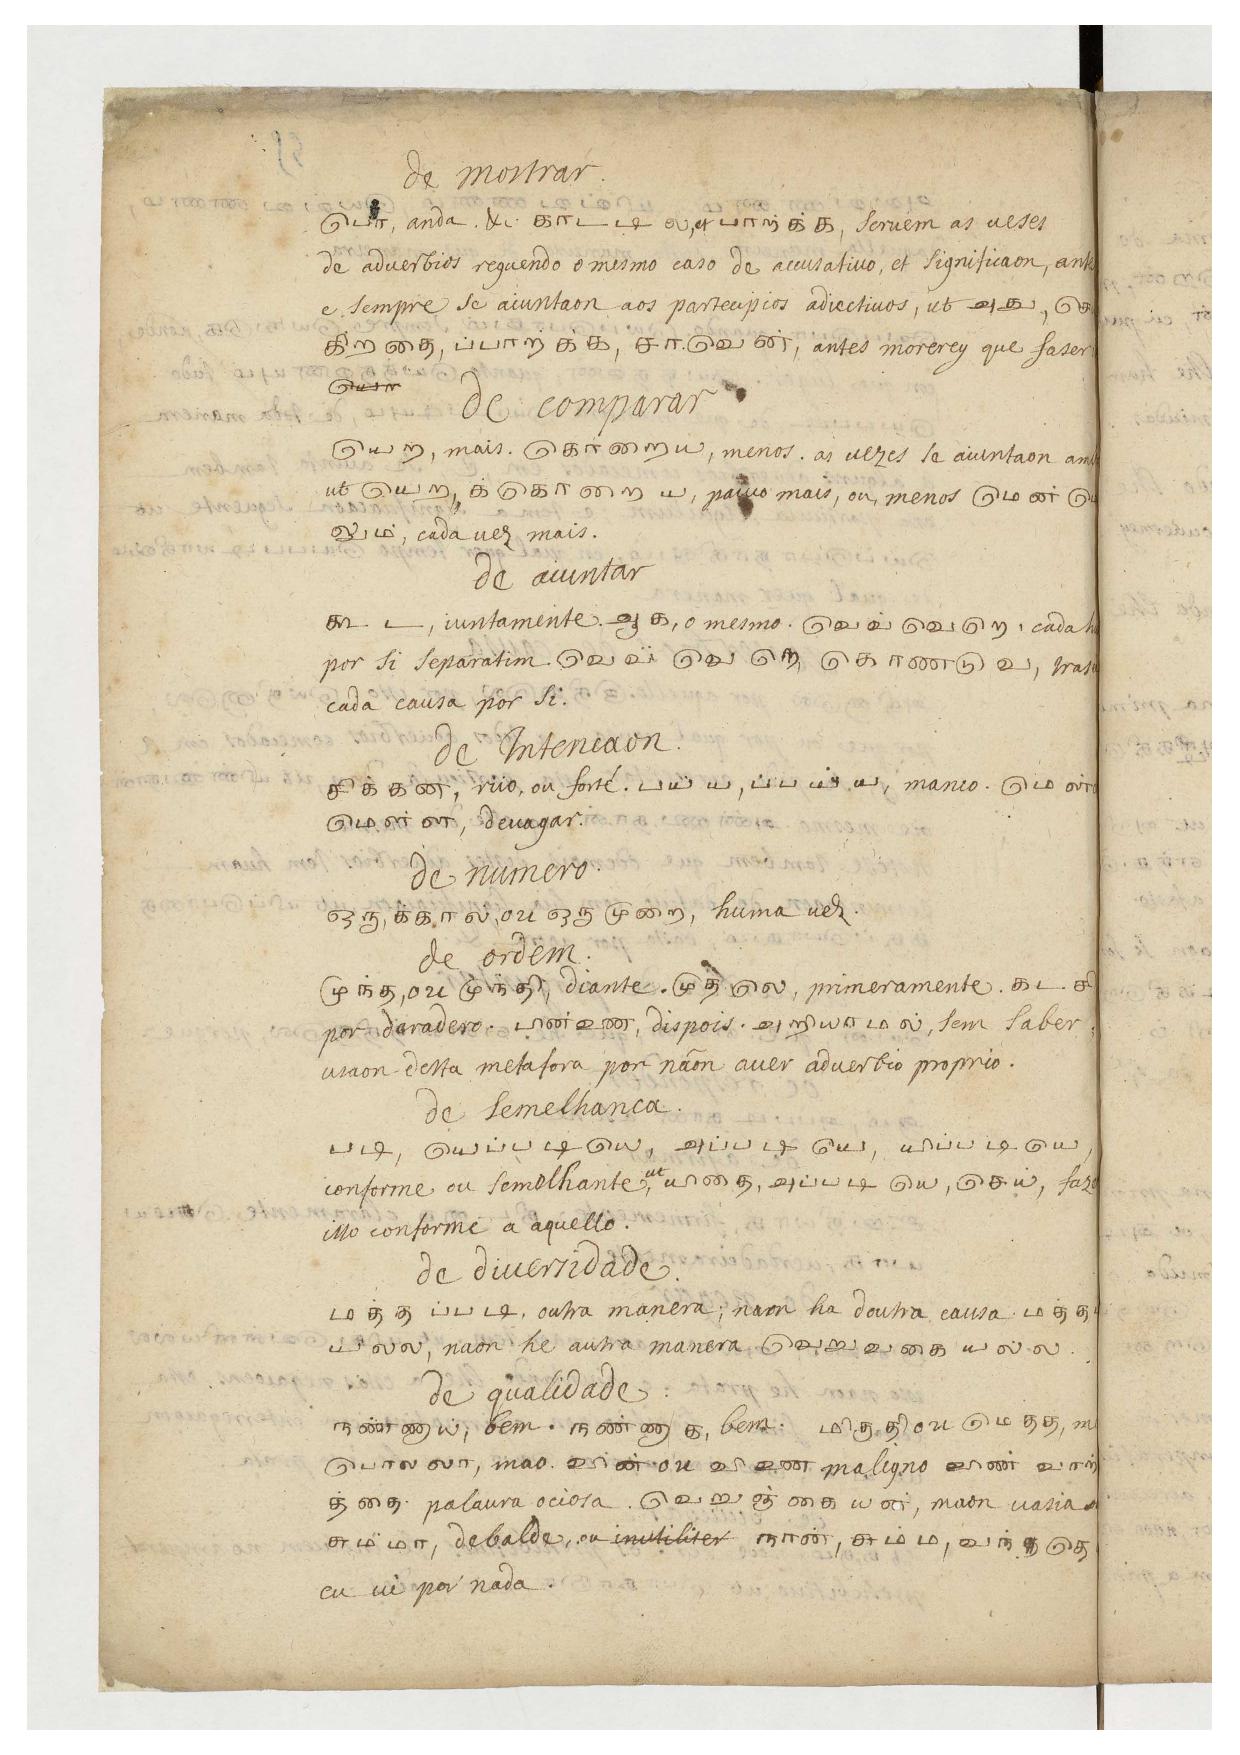 de mostrar.
பொ, anda. &c. காட்டில, et பாற்க்க, seruem as ueses
de aduerbios reguendo o mesmo caso de accusatiuo, et significaon, ant
e sempre se aiuntaon aos partecipios adiectiuos, ut அது, செ
கிறதை, ப்பாற்க்க, சாவென், antes morerey que faser
de comparar
யெற, mais. கொறைய, menos. as uezes se aiuntaon am
ut யெற, க்கொறைய, pouuo mais, ou, menos மென்மெ
லும், cada uez mais.
de aiuntar
கூட, iuntamente. ஆக, o mesmo. வெவ்வெறெ, cada h
por si separatim. வெவ் வெறெ, கொண்டுவ, tras
cada causa por si.
de Intencaon.
சிக்கன, riio, ou forté. பய்ய, ப்பய்ய, manco. மெள்
மெள்ள, deuagar.
de numero.
ஒரு, க்கால, ou ஒருமுறை, huma uez.
de ordem.
முந்த, ou முந்தி, diante. முதலெ, primeramente. கடசி
por daradero. பின்னை, dispois. அறியாமல், sem saber
usaon desta metafora por naõn auer aduerbio proprio.
de semelhanca.
படி, யெப்படியெ, அப்படியெ, யிப்படியெ,
conforme ou semelhante, ut யிதை, அப்படியெ, செய், faze
isso conforme a aquello.
de diuersidade.
மத்தப்படி, outra manera; naon ha doutra causa மத்த
யில்ல, naon he autra manera வெறுவகை யல்ல.
de qualidade.
நன்னாய், bem. நன்னாக, bem. மிகுதி ou மெத்த, m
பொல்லா, mao. வீண் ou வீணை maligno வீண் வார்
த்தை palaura ociosa. வெறுங்கையன், maon uasia
சும்மா, debalde, ou inutiliter நான், சும்ம, வந்தெ
eu ui por nada.